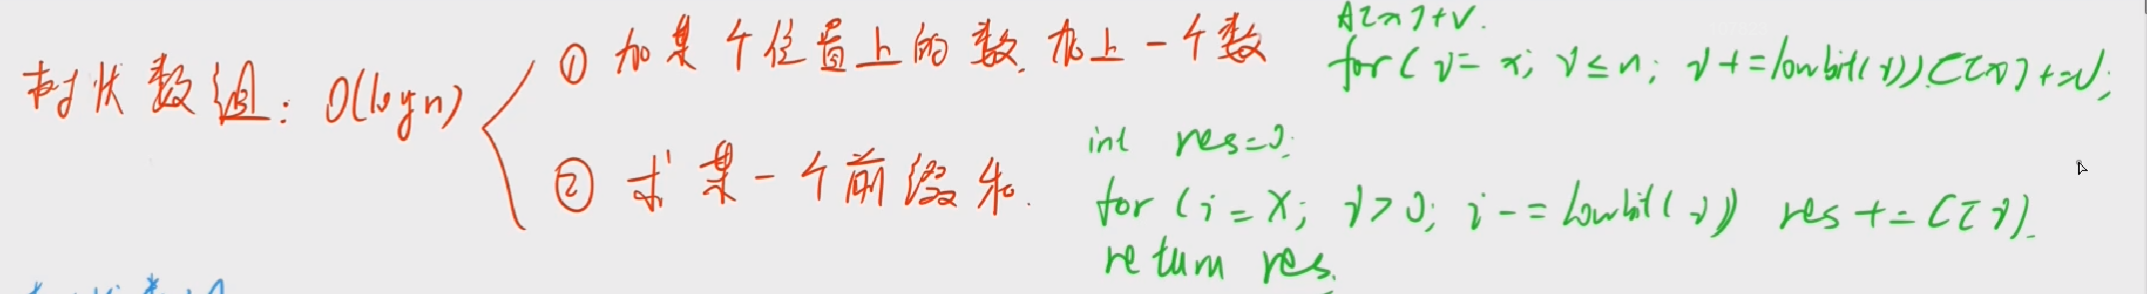 树状数组: O(logn)
① 加某个位置上的数, 加上一个数
A[x]+v.
for(i= x; i≤n; i+=lowbit(i)) C[x]+=v;
② 求某一个前缀和.
int res=0;
for (i=x; i>0; i-=lowbit(i)) res += C[i].
return res.